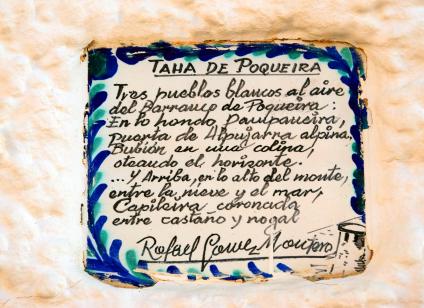 TAHA DE POQUEIRA
Tres pueblos blancos al aire
del Barranco de Poqueira:
En lo hondo Paulpaneira,
puerta de Alpujarra alpina.
Bubión en una colina,
oteando el horizonte.
...Y Arriba, en lo alto del monte,
entre la nieve y el mar,
Capileira coronada
entre castaño y nogal
Rafael Gomez Montero